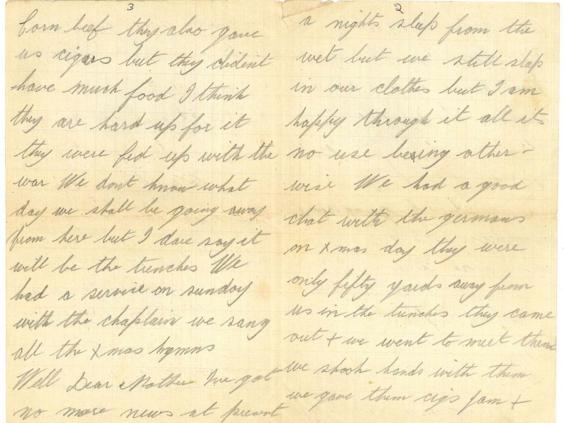 2
a nights sleep from the
wet but we still slep
in our clothes but I am
happy through it all its
no use being other-
wise We had a good
chat with the germans
on Xmas day they were
only fifty yards away from
us in the trenches they came
out + we went to meet them
we shook hands with them
we gave them cigs Jam +
3
Corn beef they also gave
us cigars but they didint
have much food I think
they are hard up for it
they were fed up with the
war We dont know what
day we shall be going away
from here but I dare say it
will be the trenches We
had a service on sunday
with the chaplain we sang
all the Xmas hymns
Well Dear Mother Ive got
no more news at present